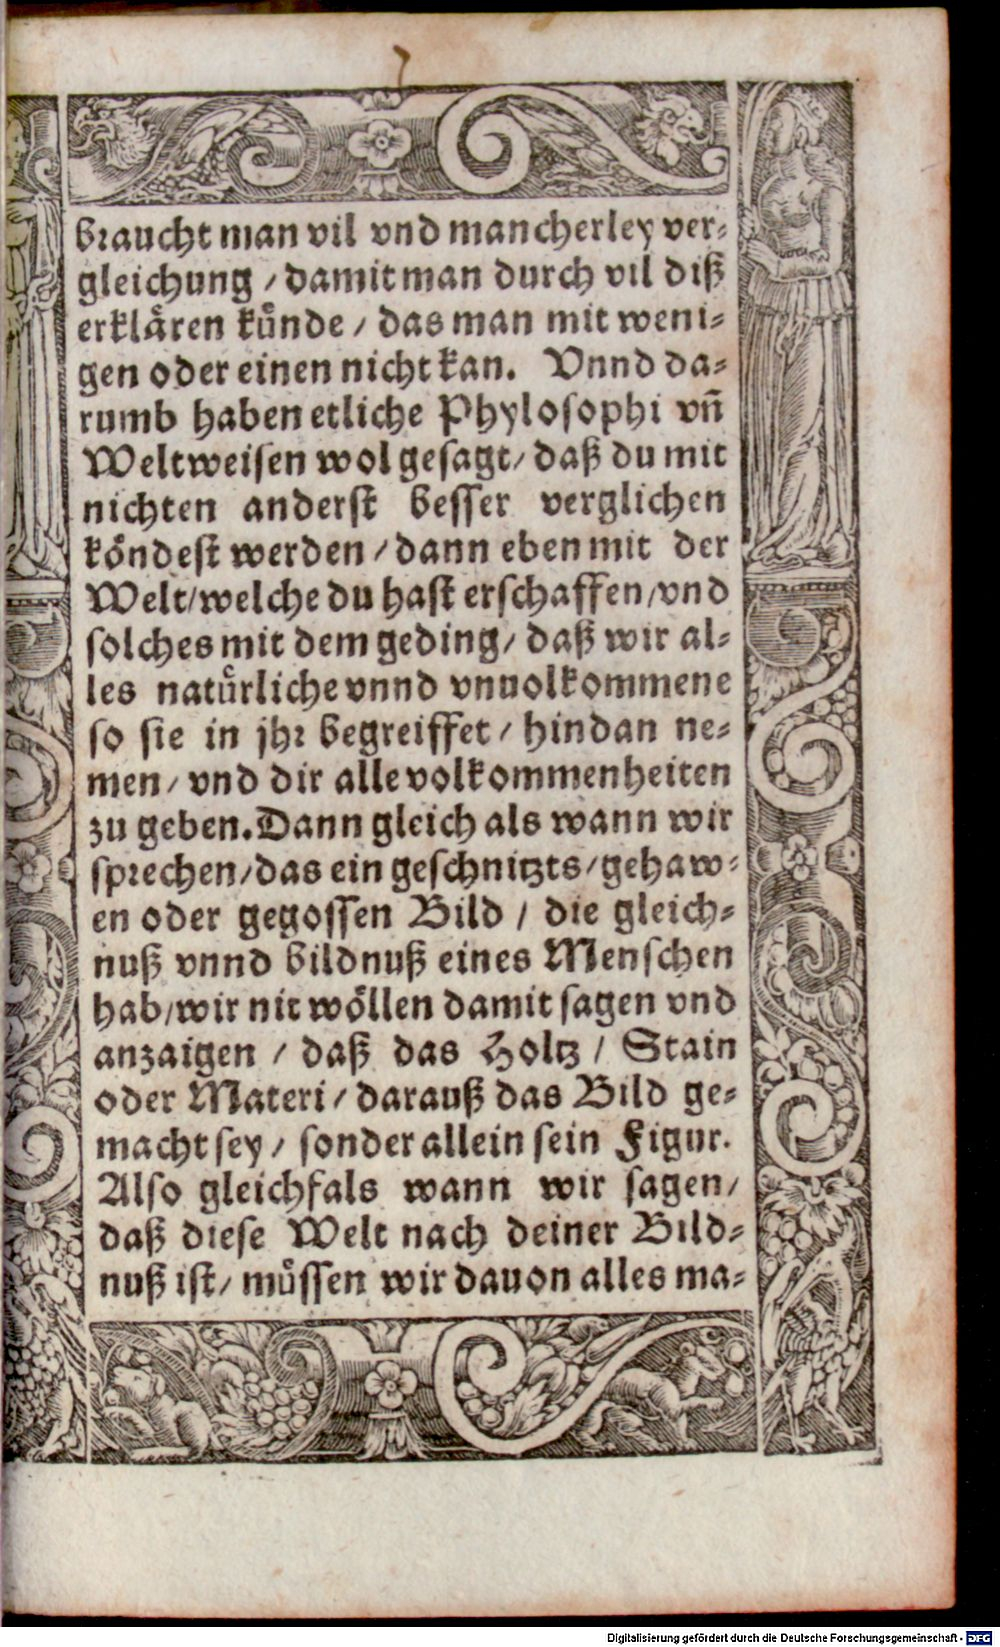 7
braucht man vil vnd mancherley ver⸗
gleichung / damit man durch vil diß
erklären künde / das man mit weni⸗
gen oder einen nicht kan. Vnnd da⸗
rumb haben etliche Phylosophi vñ
Weltweisen wol gesagt / daß du mit
nichten anderst besser verglichen
köndest werden / dann eben mit der
Welt / welche du hast erschaffen / vnd
solches mit dem geding / daß wir al⸗
les natürliche vnnd vnuolkommene
so sie in jhr begreiffet / hindan ne⸗
men / vnd dir alle volkommenheiten
zu geben. Dann gleich als wann wir
sprechen / das ein geschnitzts / gehaw⸗
en oder gegossen Bild / die gleich⸗
nuß vnnd bildnuß eines Menschen
hab / wir nit wöllen damit sagen vnd
anzaigen / daß das Holtz / Stain
oder Materi / darauß das Bild ge⸗
macht sey / sonder allein sein Figur.
Also gleichfals wann wir sagen /
daß diese Welt nach deiner Bild⸗
nuß ist / müssen wir dauon alles ma⸗
Digitalisierung gefördert durch die Deutsche Forschungsgemeinschaft - DFG